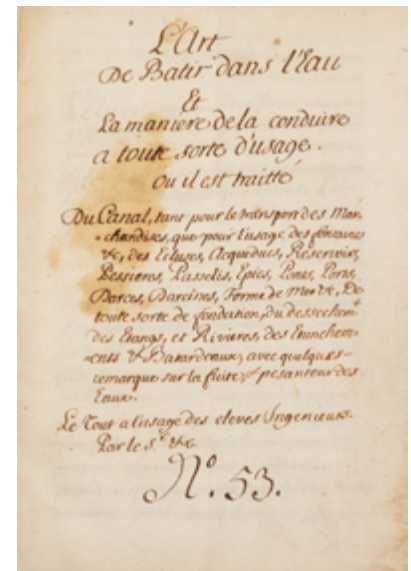 L'Art
De Batir dans l'Eau
&
La maniere de la conduire
a toute sorte d'usage.
Ou il est traitté
Du Canal, tant pour le transport des Mar-
-chandises, que pour l'usage des fontaines
&c, des Ecluses, Acqueducs, Reservoirs,
Passelis, Epics, Ponts, Ports,
Darces, Darcines, Forme de Mer &c, De
toute sorte de fondation, du dessechemt
des Etangs, et Rivieres, des
& Batardeaux, avec quelques
remarque sur la fuite, & pesanteur des
Eaux.
Le Tout a l'usage des eleves Ingenieurs.
Par le Sr. &c
No. 53.